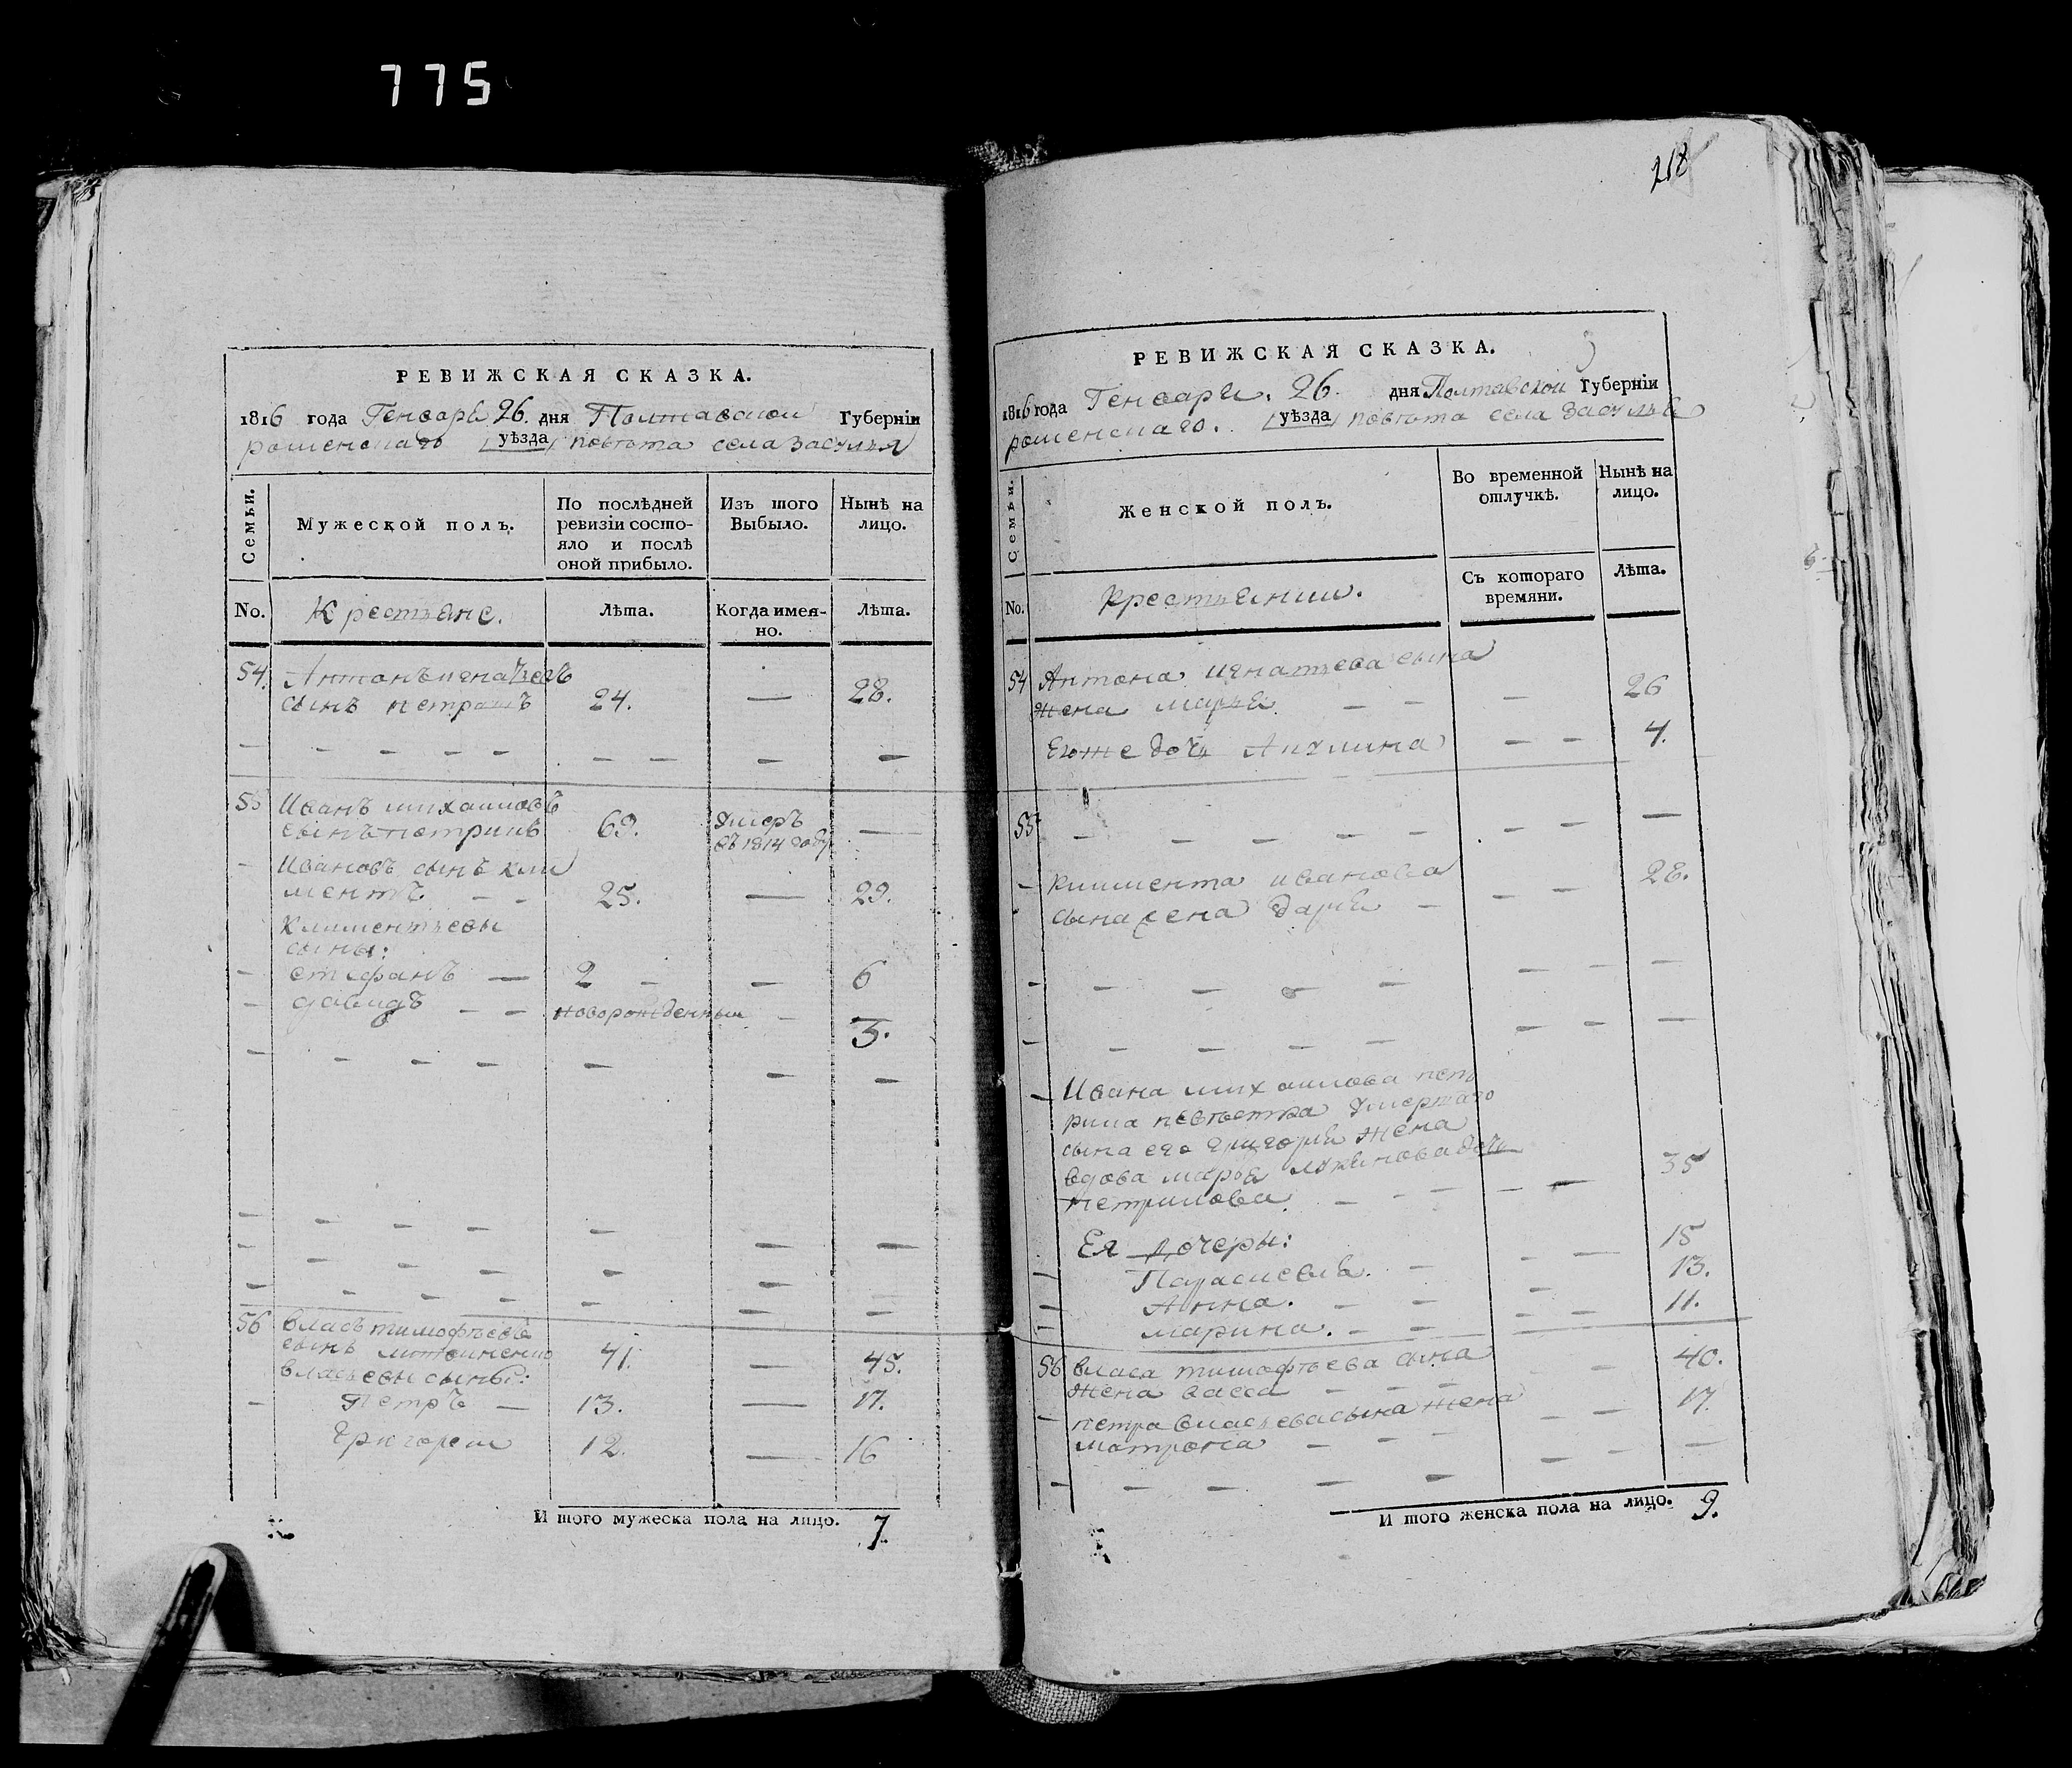 775
РЕВИЖСКАЯ СКАЗКА.
1816 года Генваря 26. дня Полтавской Губерніи
роменскаго уѣзда повѣта села Засулья
Семьи.
Мужеской полъ.
По послѣдней ревизіи состо-
яло и послѣ
оной прибыло.
Изъ того
Выбыло.
Нынѣ на
лицо.
No. Крестьяне. Лѣта. Когда имен-
но. Лѣта.
54. Антонъ игнатьевъ
сынъ 24. — 28.
55 Иванъ михаиловъ
сынъ петринъ 69. Умеръ
въ 1814 году —
Ивановъ сынъ кли
ментъ 25. — 29.
Климентьевы
сыны:
стефанъ — 2 — 6
давидъ новорожденный 3.
56 власъ тимофѣевъ
сынъ 41. — 45.
власьевы сыны:
Петръ — 13. — 17.
Григорей 12. — 16
И того мужеска пола на лицо. 7.
218
РЕВИЖСКАЯ СКАЗКА.
1816 года Генваря. 26. дня Полтавской Губерніи
роменскаго. уѣзда повѣта села Засулья
Семьи.
Женской полъ.
Во временной
отлучкѣ.
Нынѣ на
лицо.
No. Крестьянки. Съ котораго
времяни. Лѣта.
54 Антона игнатьева сына
жена марья — 26
Егоже дочь Акулина — — 4.
55
климента иванова
сына жена дарья — 28.
Ивана михаилова пет
рина невѣстка умершаго
сына его григорья жена
вдова марья дочь
петринова 35
Ея дочеры:
Параскевья. 15
Анна. 13.
марина. 11.
56 власа тимофѣева сына
жена васса 40.
петра власьева сына жена
матрона 17.
И того женска пола на лицо. 9.